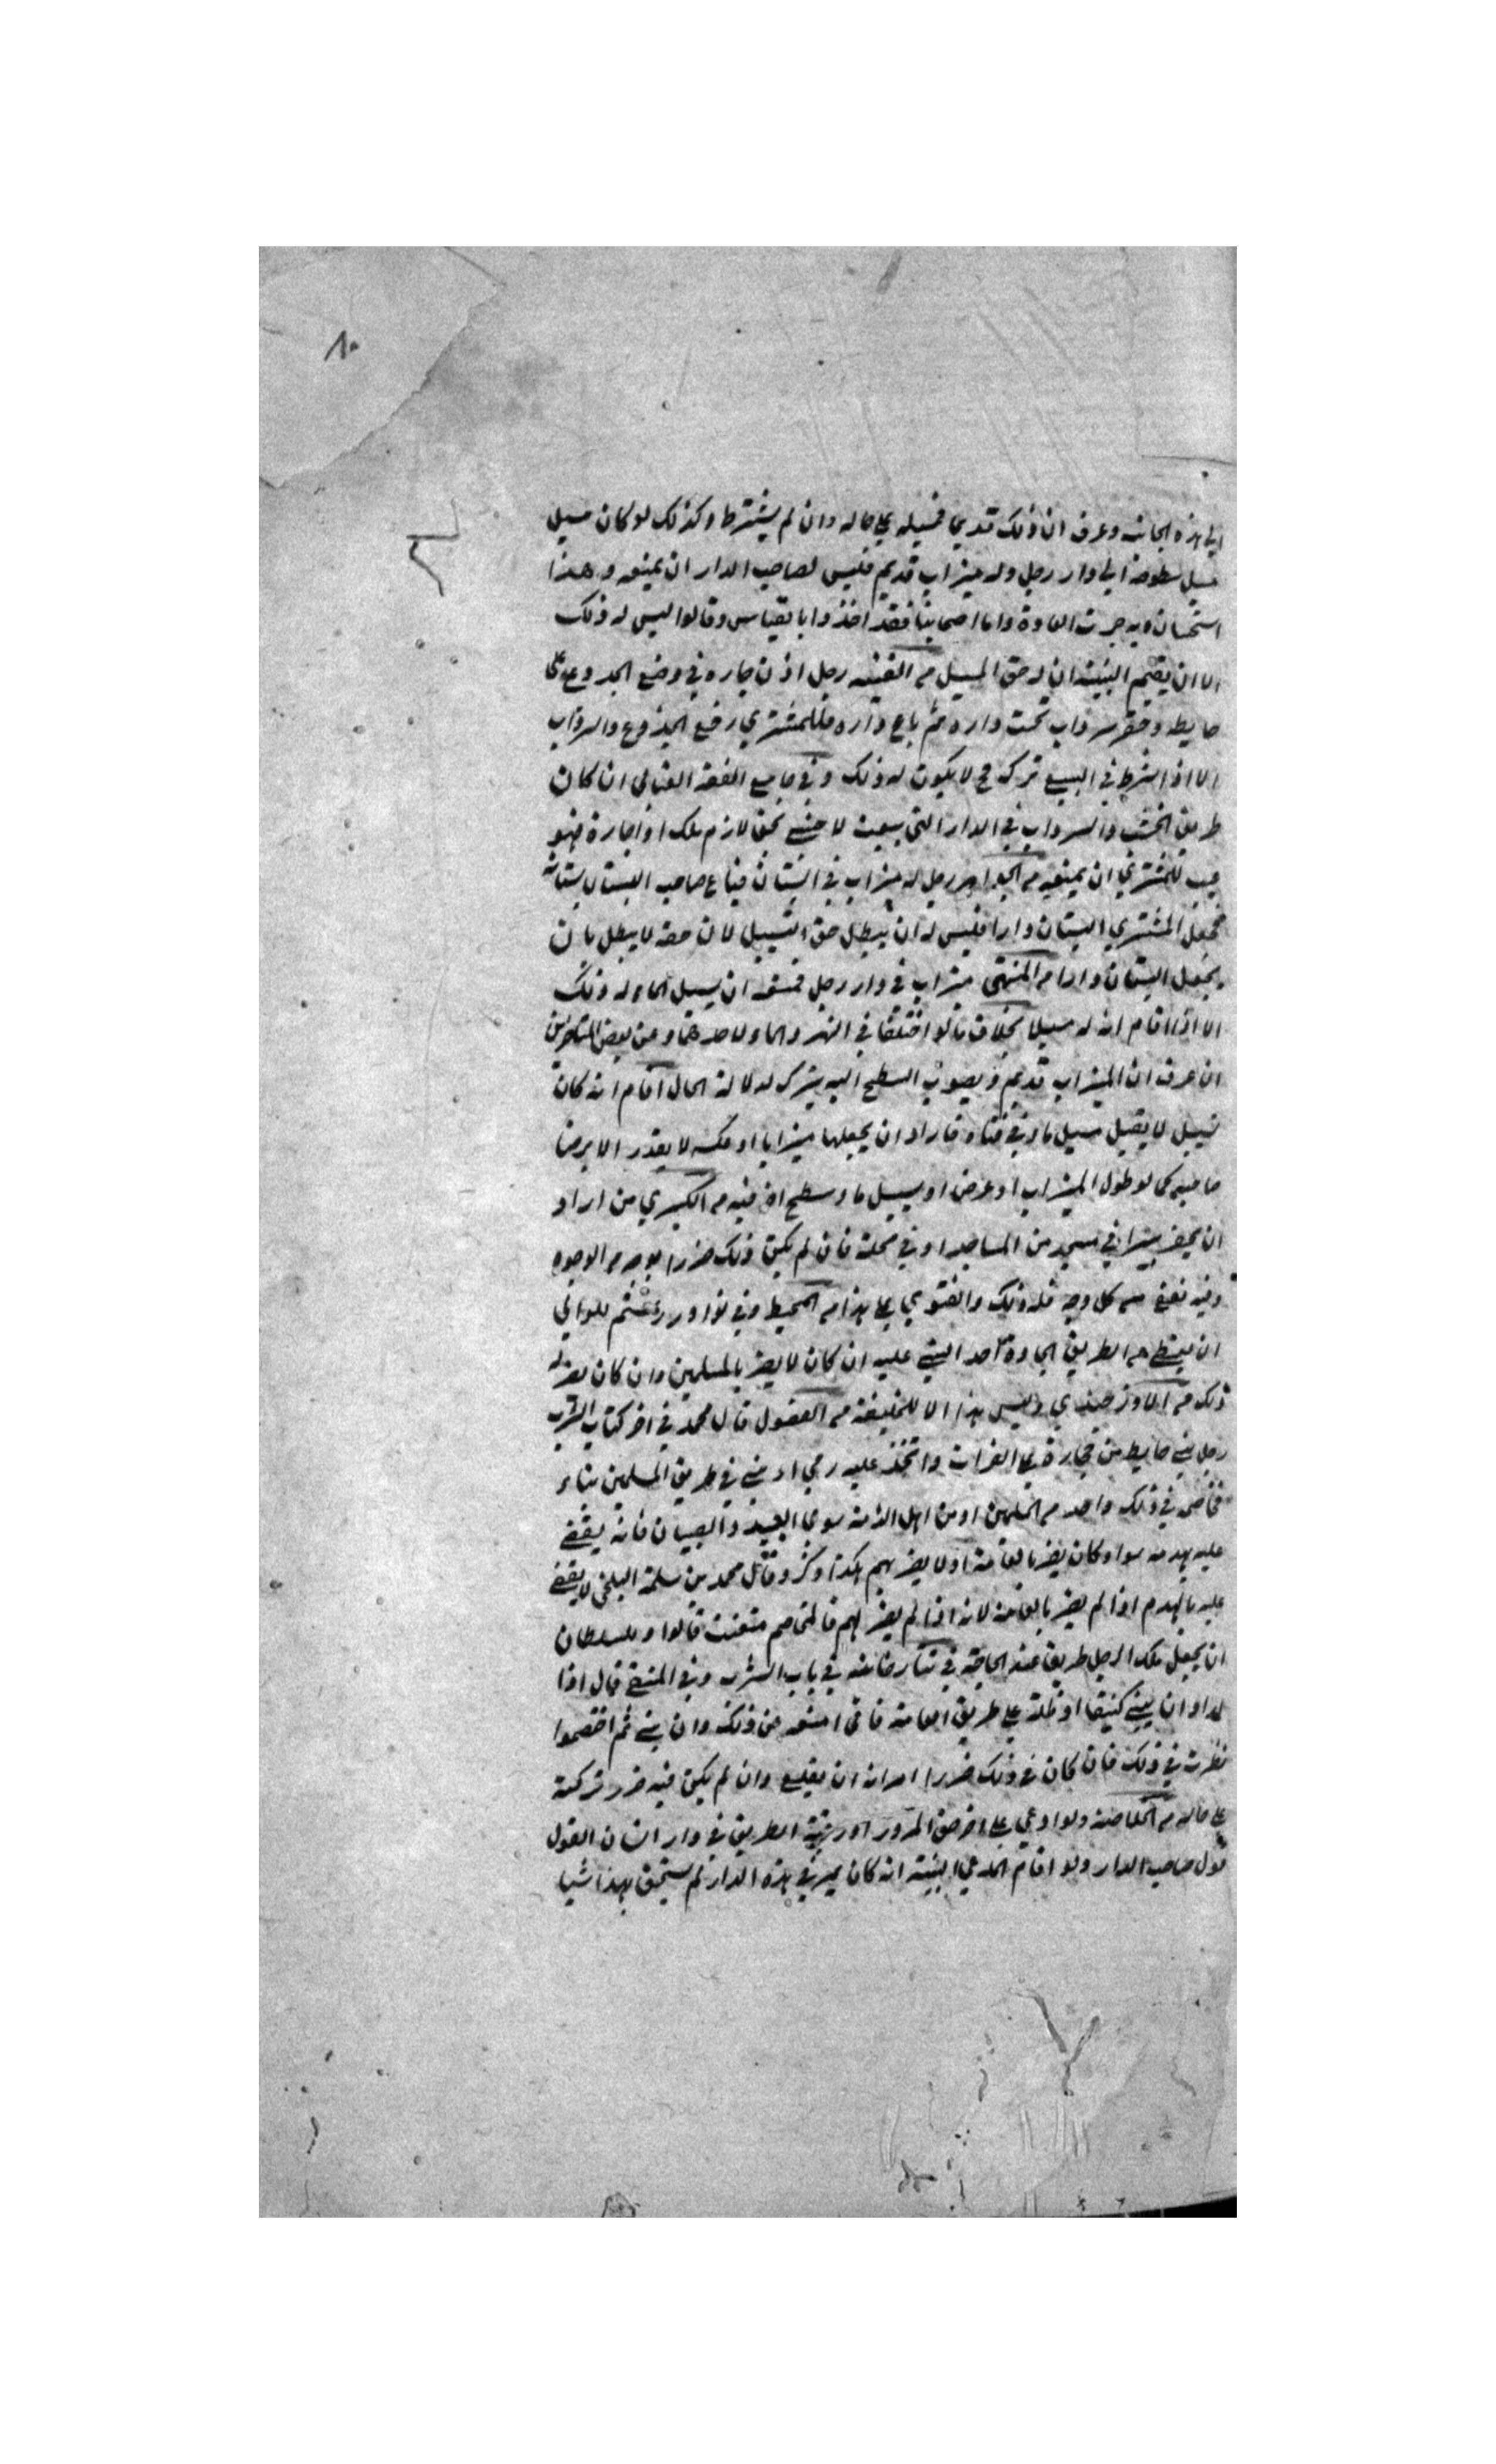 ٨٠
الي هذه الجانب وعرف ان ذلك قديما فمسيله علي حاله وان لم يشترط وكذلك لو كان مسيل
مسيل سطوحه الي دار رجل وله ميزاب قديم فليس لصاحب الدار ان يمنعه وهذا
استحسان وبه جرت العادة واما اصحابنا فقد اخذوا بالقياس وقالوا ليس له ذلك
الا ان يقيم البينة ان له حق المسيل من القنية رجل اذن جاره في وضع الجذوع علي
حايطه وحفر سرداب تحت داره ثم باع داره فللمشتري رفع الجذوع والسرداب
الا اذا شرط في البيع تركه فح لا يكون له ذلك وفي جامع الفقه العتابي ان كان
طريق الخشب والسرداب في الدار التي بيعت لاجنبي بحق لازم ملك او اجارة فهو
عيب للمشتري ان يمنعه من رجل له ميزاب في البستان فباع صاحب البستان بستانه
فجعل المشتري البستان دارا فليس له ان يبطل حق التسييل لان حقه لا يبطل بان
يجعل البستان دارا من المنتهى ميزاب في دار رجل فمنعه ان يسيل الماء له ذلك
الا اذا اقام انه له مسيلا بخلاف ما لو اختلفا في النهر والماء لاحدهما وعن بعض المتاخرين
ان عرف ان الميزاب قديم وتصويب السطح اليه يترك لدلالة الحال اقام انه كان
يسيل لا يقبل مسيل ماء في قناة فاراد ان يجعلها ميزابا او عكسه لا يقدر الا برضا
صاحبه كما لو طول الميزاب او عرض او يسيل ماء سطح اخر فيه من الكبري من اراد
ان يحفر بيرا في مسجد من المساجد او في محلة فان لم يكن ذلك ضررا بوجه من الوجوه
وفيه نفع من كل وجه فله ذلك والفتوي علي هذا من المحيط وفي نوادر رستم للوالي
ان يقطع من الطريق الجادة احد البتي عليه ان كان لا يضر بالمسلمين وان كان يضر له
ذلك من وليس هذا الا للخليفة من الفصول قال محمد في اخر كتاب الشرب
رجل بني حايط من حجارة علي الفرات واتخذ عليه رحي او بني في طريق المسلمين بناء
فخاصم في ذلك واحد من المسلمين او من اهل الذمة سوي العبيد والصبيان فانه يقضي
عليه بهدمه سواء كان يضر بالعامة او لا يضر بهم هكذا ذكر وقال محمد بن سلمة البلخي لا يقضي
عليه بالهدم اذا لم يضر بالعامة لانه اذا لم يضر لهم فالمخاصم متعنت قالوا وللسلطان
ان يجعل ملك الرجل طريقا عند الحاجة في في باب الشرب وفي المنتقي قال اذا
اراد ان يبني كنيفا او ظلة علي طريق العامة فاني امنعه عن ذلك وان بني ثم اختصموا
نظرت في ذلك فان كان في ذلك ضررا امرته ان يقلع وان لم يكن فيه ضرر تركته
علي حاله من الخلاصة ولو ادعي علي اخر حق المرور او رقبة الطريق في دار انسان القول
قول صاحب الدار ولو اقام المدعي البينة انه كان يمر في هذه الدار لم يستحق بهذا شيا